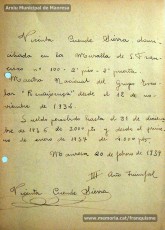 Arxiu Municipal de Manresa
Vicenta Conde Sierra domi-
ciliada en la Muralla de S. Fran-
cisco nº 100 - 2º piso - 2ª puerta
Maestra Nacional del Grupo Esco-
lar "Renaixença" desde el 12 de no-
viembre de 1936
Sueldo percibido hasta el 31 de diciem-
bre de 1936 de 3000 pts y desde el primero
de enero de 1937 de 4000 pts.
Manresa 20 de febrero de 1939
III Año Triunfal
Vicenta Conde Sierra
www.memoria.cat/franquisme